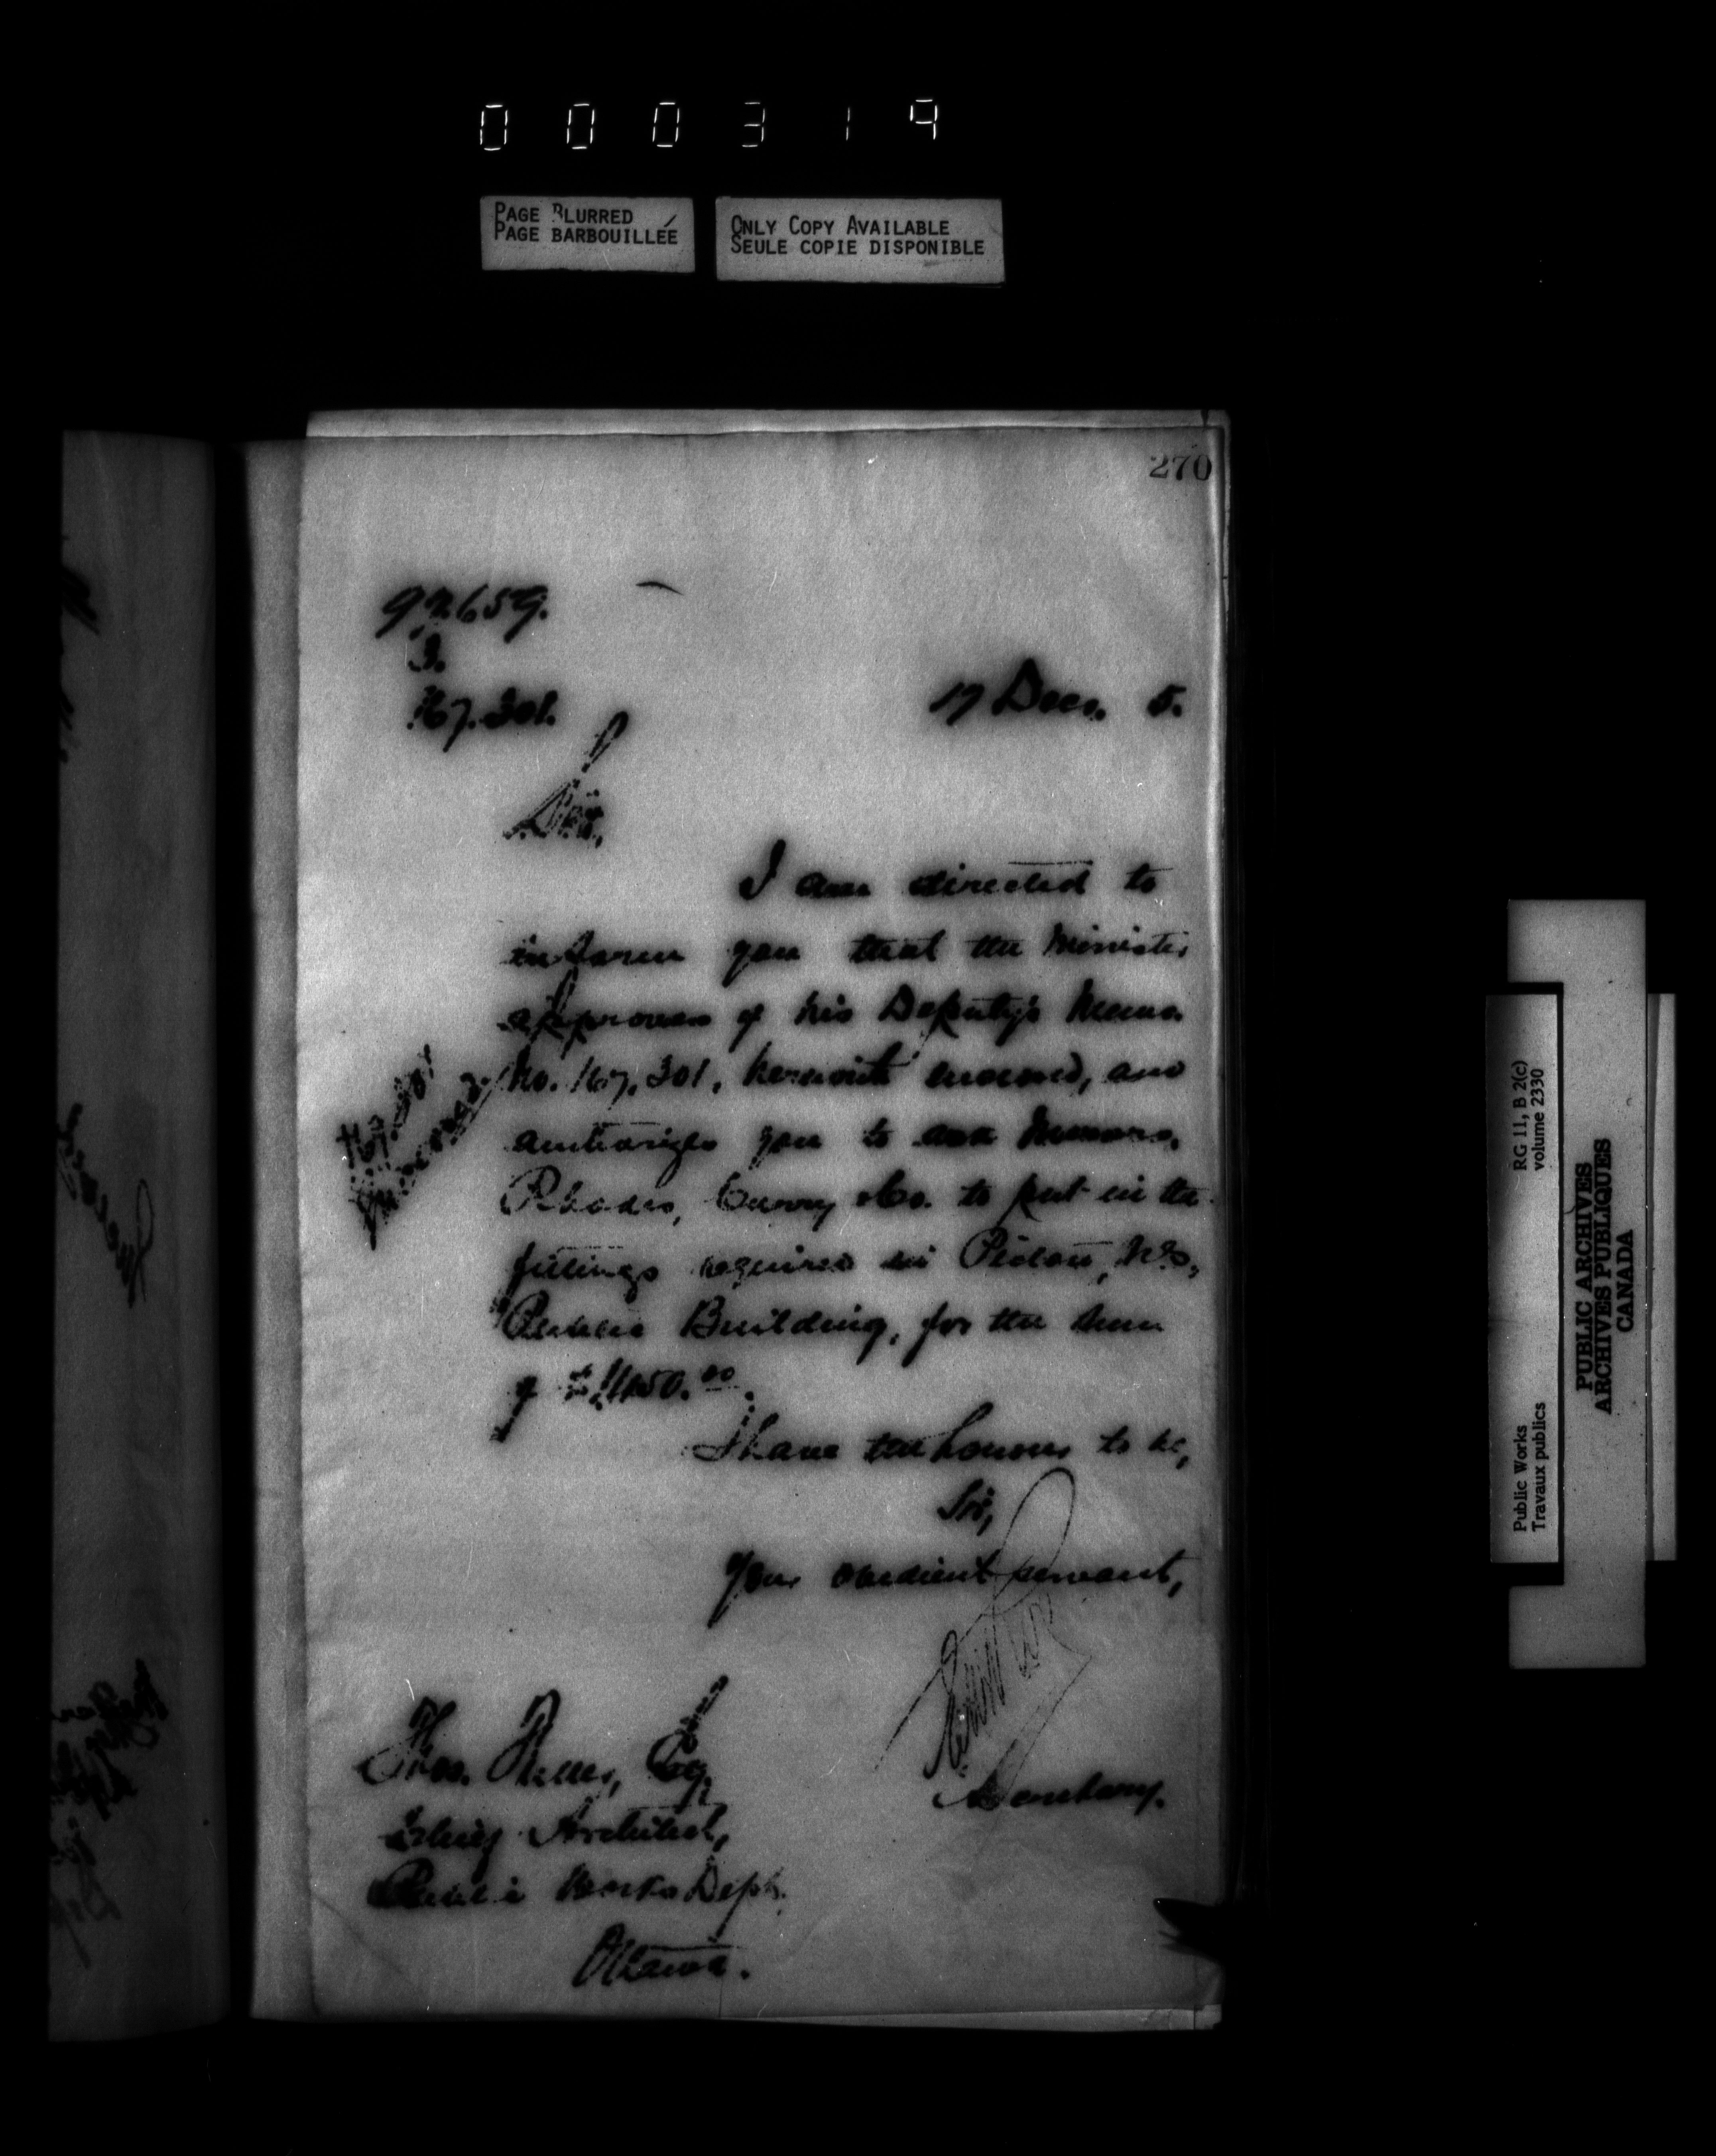 000319
PAGE BLURRED
PAGE BARBOUILLÉE
ONLY COPY AVAILABLE
SEULE COPIE DISPONIBLE
270
92659.
3.
167.301.
17 Decr. 5.
Sir,
I am directed to
inform you that the Minister
approves of his Deputy's Memo.
No. 167,301, herewith enclosed, and
authorizes you to ask Messrs.
Rhodes, Curry & Co. to put in the
fittings required in Pictou, N.S.,
Public Building, for the sum
of
167.301
I have the honour to be,
Sir,
Your obedient servant,
Secretary.
Thos.
Esq.
Chief Architect,
Public Works Dept.
Ottawa.
RG 11, B 2(c)
volume 2330
Public Works
Travaux publics
PUBLIC ARCHIVES
ARCHIVES PUBLIQUES
CANADA